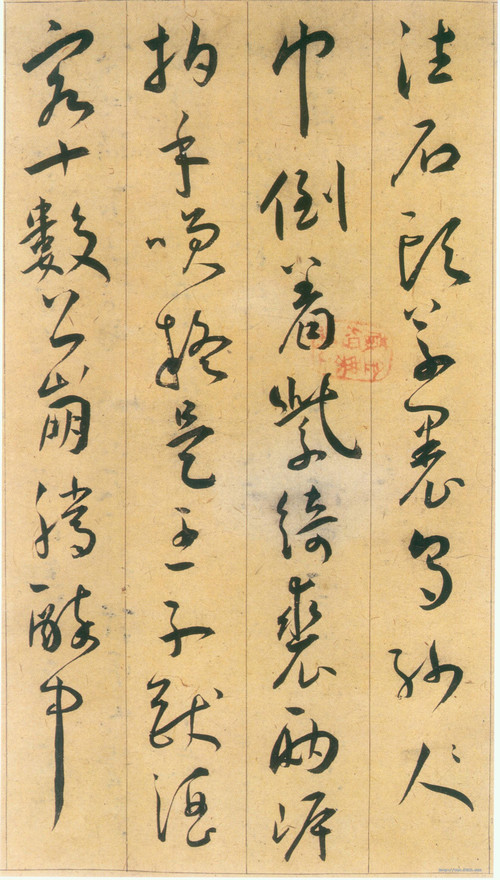 往石頭草裹烏紗人
巾倒着紫綺裘兩岸
拍手咲疑是王子猷酒
客十數公崩騰醉中